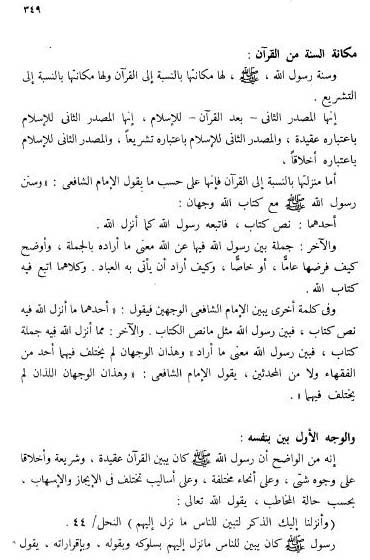 ٣٤٩
مكانة السنة من القرآن :
وسنة رسول الله ، ﷺ ، لها مكانتها بالنسبة إلى القرآن ولها مكانتها بالنسبة إلى
التشريع .
إنها المصدر الثانى – بعد القرآن – للإسلام ، إنها المصدر الثانى للإسلام
باعتباره عقيدة ، والمصدر الثانى للإسلام باعتباره تشريعاً ، والمصدر الثانى للإسلام
باعتباره أخلاقاً .
أما منزلتها بالنسبة إلى القرآن فإنها على حسب ما يقول الإمام الشافعى : « وسنن
رسول الله ﷺ مع كتاب الله وجهان :
أحدهما : نص كتاب ، فاتبعه رسول الله كما أنزل الله .
والآخر : جملة بين رسول الله فيها عن الله معنى ما أراده بالجملة ، وأوضح
كيف فرضها عامًّا ، أو خاصًّا ، وكيف أراد أن يأتى به العباد . وكلاهما اتبع فيه
كتاب الله .
وفى كلمة أخرى يبين الإمام الشافعى الوجهين فيقول : « أحدهما ما أنزل الله فيه
نص كتاب ، فبين رسول الله مثل مانص الكتاب . والآخر : مما أنزل الله فيه جملة
كتاب ، فبين رسول الله معنى ما أراد » وهذان الوجهان لم يختلف فيهما أحد من
الفقهاء ولا من المحدثين ، يقول الإمام الشافعى : « وهذان الوجهان اللذان لم
يختلف فيهما » .
والوجه الأول بين بنفسه :
إنه من الواضح أن رسول الله ﷺ كان يبين القرآن عقيدة ، وشريعة وأخلاقا
على وجوه شتى ، وعلى أنحاء مختلفة ، وعلى أساليب تختلف فى الإيجاز والإسهاب ،
بحسب حالة المخاطب ، يقول الله تعالى :
(وأنزلنا إليك الذكر لتبين للناس ما نزل إليهم) النحل/ ٤٤ .
رسول ﷺ كان يبين للناس مانزل إليهم بسلوكه وبقوله ، وبإقراراته ، يقول